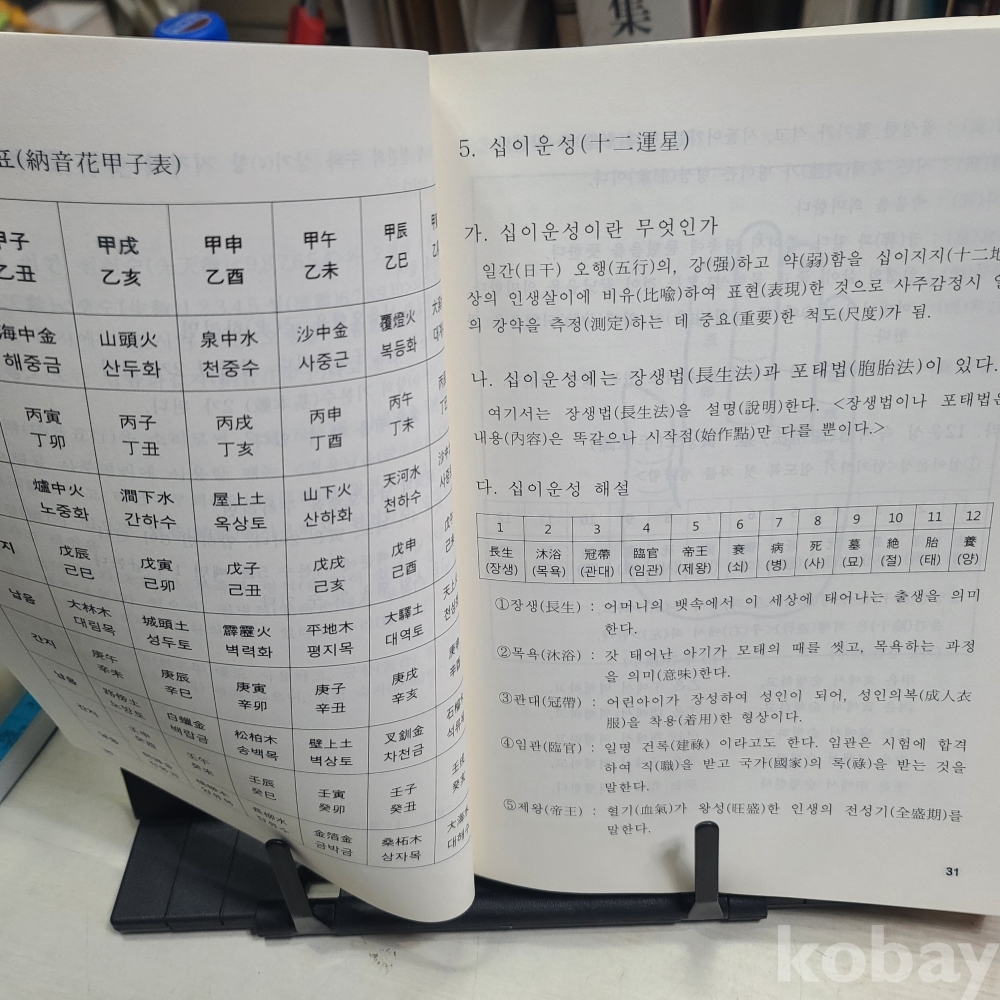 集
표(納音花甲子表)
甲子 甲戌 甲申 甲午 甲辰
乙丑 乙亥 乙酉 乙未 乙巳
海中金 山頭火 泉中水 沙中金 覆燈火
해중금 산두화 천중수 사중근 복등화
丙寅 丙子 丙戌 丙申 丙午
丁卯 丁丑 丁亥 丁酉 丁未
爐中火 澗下水 屋上土 山下火 天河水
노중화 간하수 옥상토 산하화 천하수
戊辰 戊寅 戊子 戊戌 戊申
己巳 己卯 己丑 己亥 己酉
납음 大林木 城頭土 霹靂火 平地木 大驛土
대림목 성두토 벽력화 평지목 대역토
간지 庚午 庚辰 庚寅 庚子 庚戌
辛未 辛巳 辛卯 辛丑 辛亥
납음 路傍土 白蠟金 松柏木 壁上土 叉釧金
노방토 백랍금 송백목 벽상토 차천금
간지 壬申 壬午 壬辰 壬寅 壬子
癸酉 癸未 癸巳 癸卯 癸丑
金箔金 桑柘木
금박금 상자목
5. 십이운성(十二運星)
가. 십이운성이란 무엇인가
일간(日干) 오행(五行)의, 강(强)하고 약(弱)함을 십이지지(十二地
상의 인생살이에 비유(比喩)하여 표현(表現)한 것으로 사주감정시 일
의 강약을 측정(測定)하는 데 중요(重要)한 척도(尺度)가 됨.
나. 십이운성에는 장생법(長生法)과 포태법(胞胎法)이 있다.
여기서는 장생법(長生法)을 설명(說明)한다. <장생법이나 포태법은
내용(內容)은 똑같으나 시작점(始作點)만 다를 뿐이다.>
다. 십이운성 해설
1 2 3 4 5 6 7 8 9 10 11 12
長生 沐浴 冠帶 臨官 帝王 衰 病 死 墓 絶 胎 養
(장생) (목욕) (관대) (임관) (제왕) (쇠) (병) (사) (묘) (절) (태) (양)
①장생(長生) : 어머니의 뱃속에서 이 세상에 태어나는 출생을 의미
한다.
②목욕(沐浴) : 갓 태어난 아기가 모태의 때를 씻고, 목욕하는 과정
을 의미(意味)한다.
③관대(冠帶) : 어린아이가 장성하여 성인이 되어, 성인의복(成人衣
服)을 착용(着用)한 형상이다.
④임관(臨官) : 일명 건록(建祿) 이라고도 한다. 임관은 시험에 합격
하여 직(職)을 받고 국가(國家)의 록(祿)을 받는 것을
말한다.
⑤제왕(帝王) : 혈기(血氣)가 왕성(旺盛)한 인생의 전성기(全盛期)를
말한다.
31
kobay